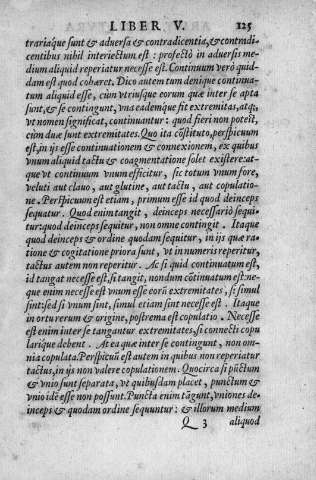 LIBER V. 125
trariaque sunt & aduersa & contradicentia, & contradi-
centibus nihil interiectum est : profectò in aduersis me-
dium aliquid reperiatur necesse est. Continuum verò quid-
dam est quod cohæret. Dico autem tum denique continua-
tum aliquid esse, cùm vtriusque eorum quæ inter se apta
sunt, & se contingunt, vna eademque fit extremitas, atq;,
vt nomen significat, continuantur : quod fieri non potest,
cùm duæ sunt extremitates. Quo ita cōstituto, perspicuum
est, in ijs esse continuationem & connexionem, ex quibus
vnum aliquid tactu & coagmentatione solet existere: at-
que vt continuum vnum efficitur, sic totum vnum fore,
veluti aut clauo, aut glutine, aut tactu, aut copulatio-
ne. Perspicuum est etiam, primum esse id quod deinceps
sequatur. Quod enim tangit, deinceps necessariò sequi-
tur: quod deinceps sequitur, non omne contingit. Itaque
quod deinceps & ordine quodam sequitur, in ijs quæ ra-
tione & cogitatione priora sunt, vt in numeris reperitur,
tactus autem non reperitur. Ac si quid continuatum est,
id tangat necesse est, si tangit, nondum cōtinuatum est: ne-
que enim necesse est vnum esse eorū extremitates, si simul
sint: sed si vnum sint, simul etiam sint necesse est. Itaque
in ortu rerum & origine, postrema est copulatio. Necesse
est enim inter se tangantur extremitates, si connecti copu
larique debent. At ea quæ inter se contingunt, non om-
nia copulata. Perspicuū est autem in quibus non reperiatur
tactus, in ijs non valere copulationem. Quocirca si pūctum
& vnio sunt separata, vt quibusdam placet, punctum &
vnio idē esse non possunt. Puncta enim tāgunt, vniones de-
inceps & quodam ordine sequuntur : & illorum medium
Q 3 aliquod